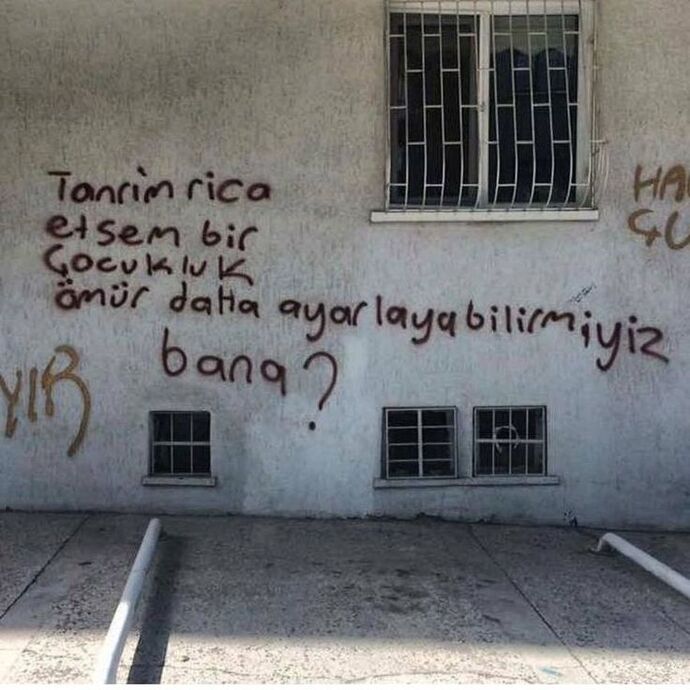 Tanrım rica
etsem bir
Çocukluk
ömür daha ayarlayabilirmiyiz
bana?
HA
ÇU
YIR